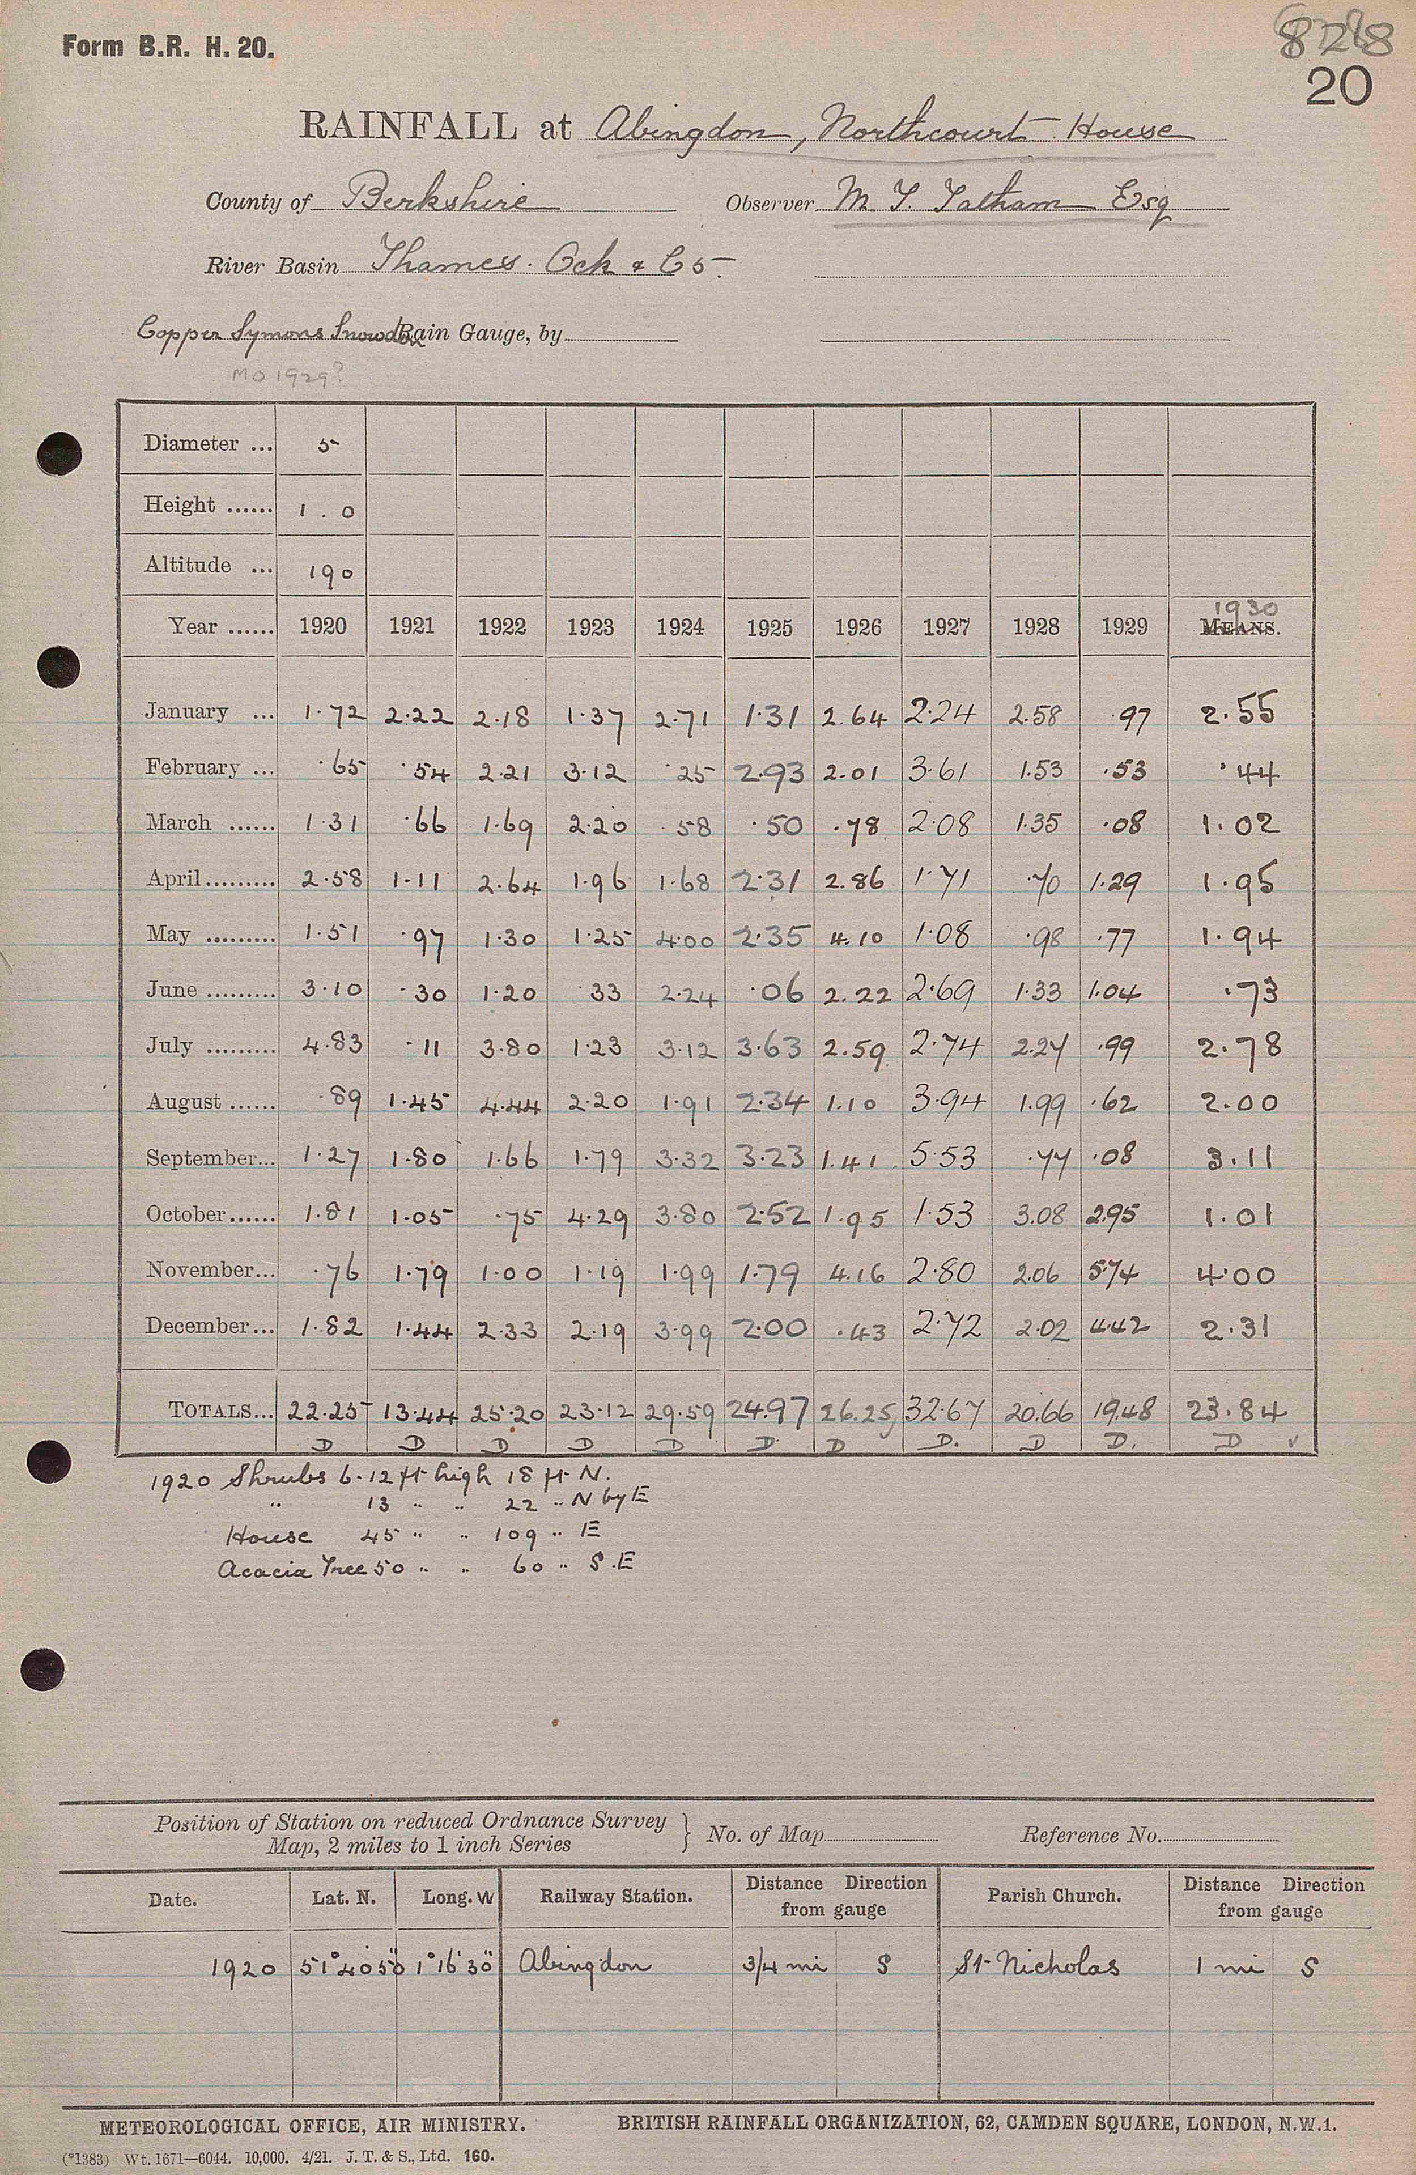 Form B.R. H. 20.
8268
20
RAINFALL at Abingdon, Northcourt House
County of Berkshire Observer M. T. Tatham Esq
River Basin Thames. Ock & C 5.
Copper Symons Snowdon Rain Gauge, by
MO 1929?
Diameter ... 5
Height ...... 1 . 0
Altitude ... 190
1930
Year ...... 1920 1921 1922 1923 1924 1925 1926 1927 1928 1929 MEANS.
January ... 1.72 2.22 2.18 1.37 2.71 1.31 2.64 2.24 2.58 .97 2.55
February ... .65 .54 2.21 3.12 .25 2.93 2.01 3.61 1.53 .53 .44
March ...... 1.31 .66 1.69 2.20 .58 .50 .78 2.08 1.35 .08 1.02
April ......... 2.58 1.11 2.64 1.96 1.68 2.31 2.86 1.71 .70 1.29 1.95
May ......... 1.51 .97 1.30 1.25 4.00 2.35 4.10 1.08 .98 .77 1.94
June ......... 3.10 .30 1.20 .33 2.24 .06 2.22 2.69 1.33 1.04 .73
July ......... 4.83 .11 3.80 1.23 3.12 3.63 2.59 2.74 2.27 .99 2.78
August ...... .89 1.45 4.44 2.20 1.91 2.34 1.10 3.94 1.99 .62 2.00
September... 1.27 1.80 1.66 1.79 3.32 3.23 1.41 5.53 .77 .08 3.11
October...... 1.81 1.05 .75 4.29 3.80 2.52 1.95 1.53 3.08 2.95 1.01
November... .76 1.79 1.00 1.19 1.99 1.79 4.16 2.80 2.06 5.74 4.00
December... 1.82 1.44 2.33 2.19 3.99 2.00 .43 2.72 2.02 4.42 2.31
TOTALS... 22.25 13.44 25.20 23.12 29.59 24.97 26.25 32.67 20.66 19.48 23.84
D D D D D D D D. D D. D ✓
1920 Shrubs 6-12 ft high 18 ft N.
" 13 " " 22 " N by E
House 45 " " 109 " E
Acacia Tree 50 " " 60 " S.E
Position of Station on reduced Ordnance Survey
Map, 2 miles to 1 inch Series } No. of Map Reference No.
Date. Lat. N. Long. W Railway Station. Distance Direction from gauge Parish Church. Distance Direction from gauge
1920 51° 40' 50" 1° 16' 30" Abingdon 3/4 mi S St Nicholas 1 mi S
METEOROLOGICAL OFFICE, AIR MINISTRY. BRITISH RAINFALL ORGANIZATION, 62, CAMDEN SQUARE, LONDON, N.W.1.
(*1383) Wt. 1671—6044. 10,000. 4/21. J. T. & S., Ltd. 160.